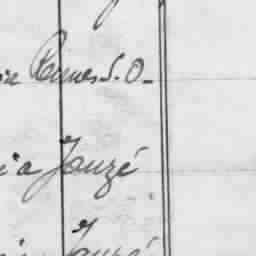 Rennes S.O.
à Janzé
Janzé